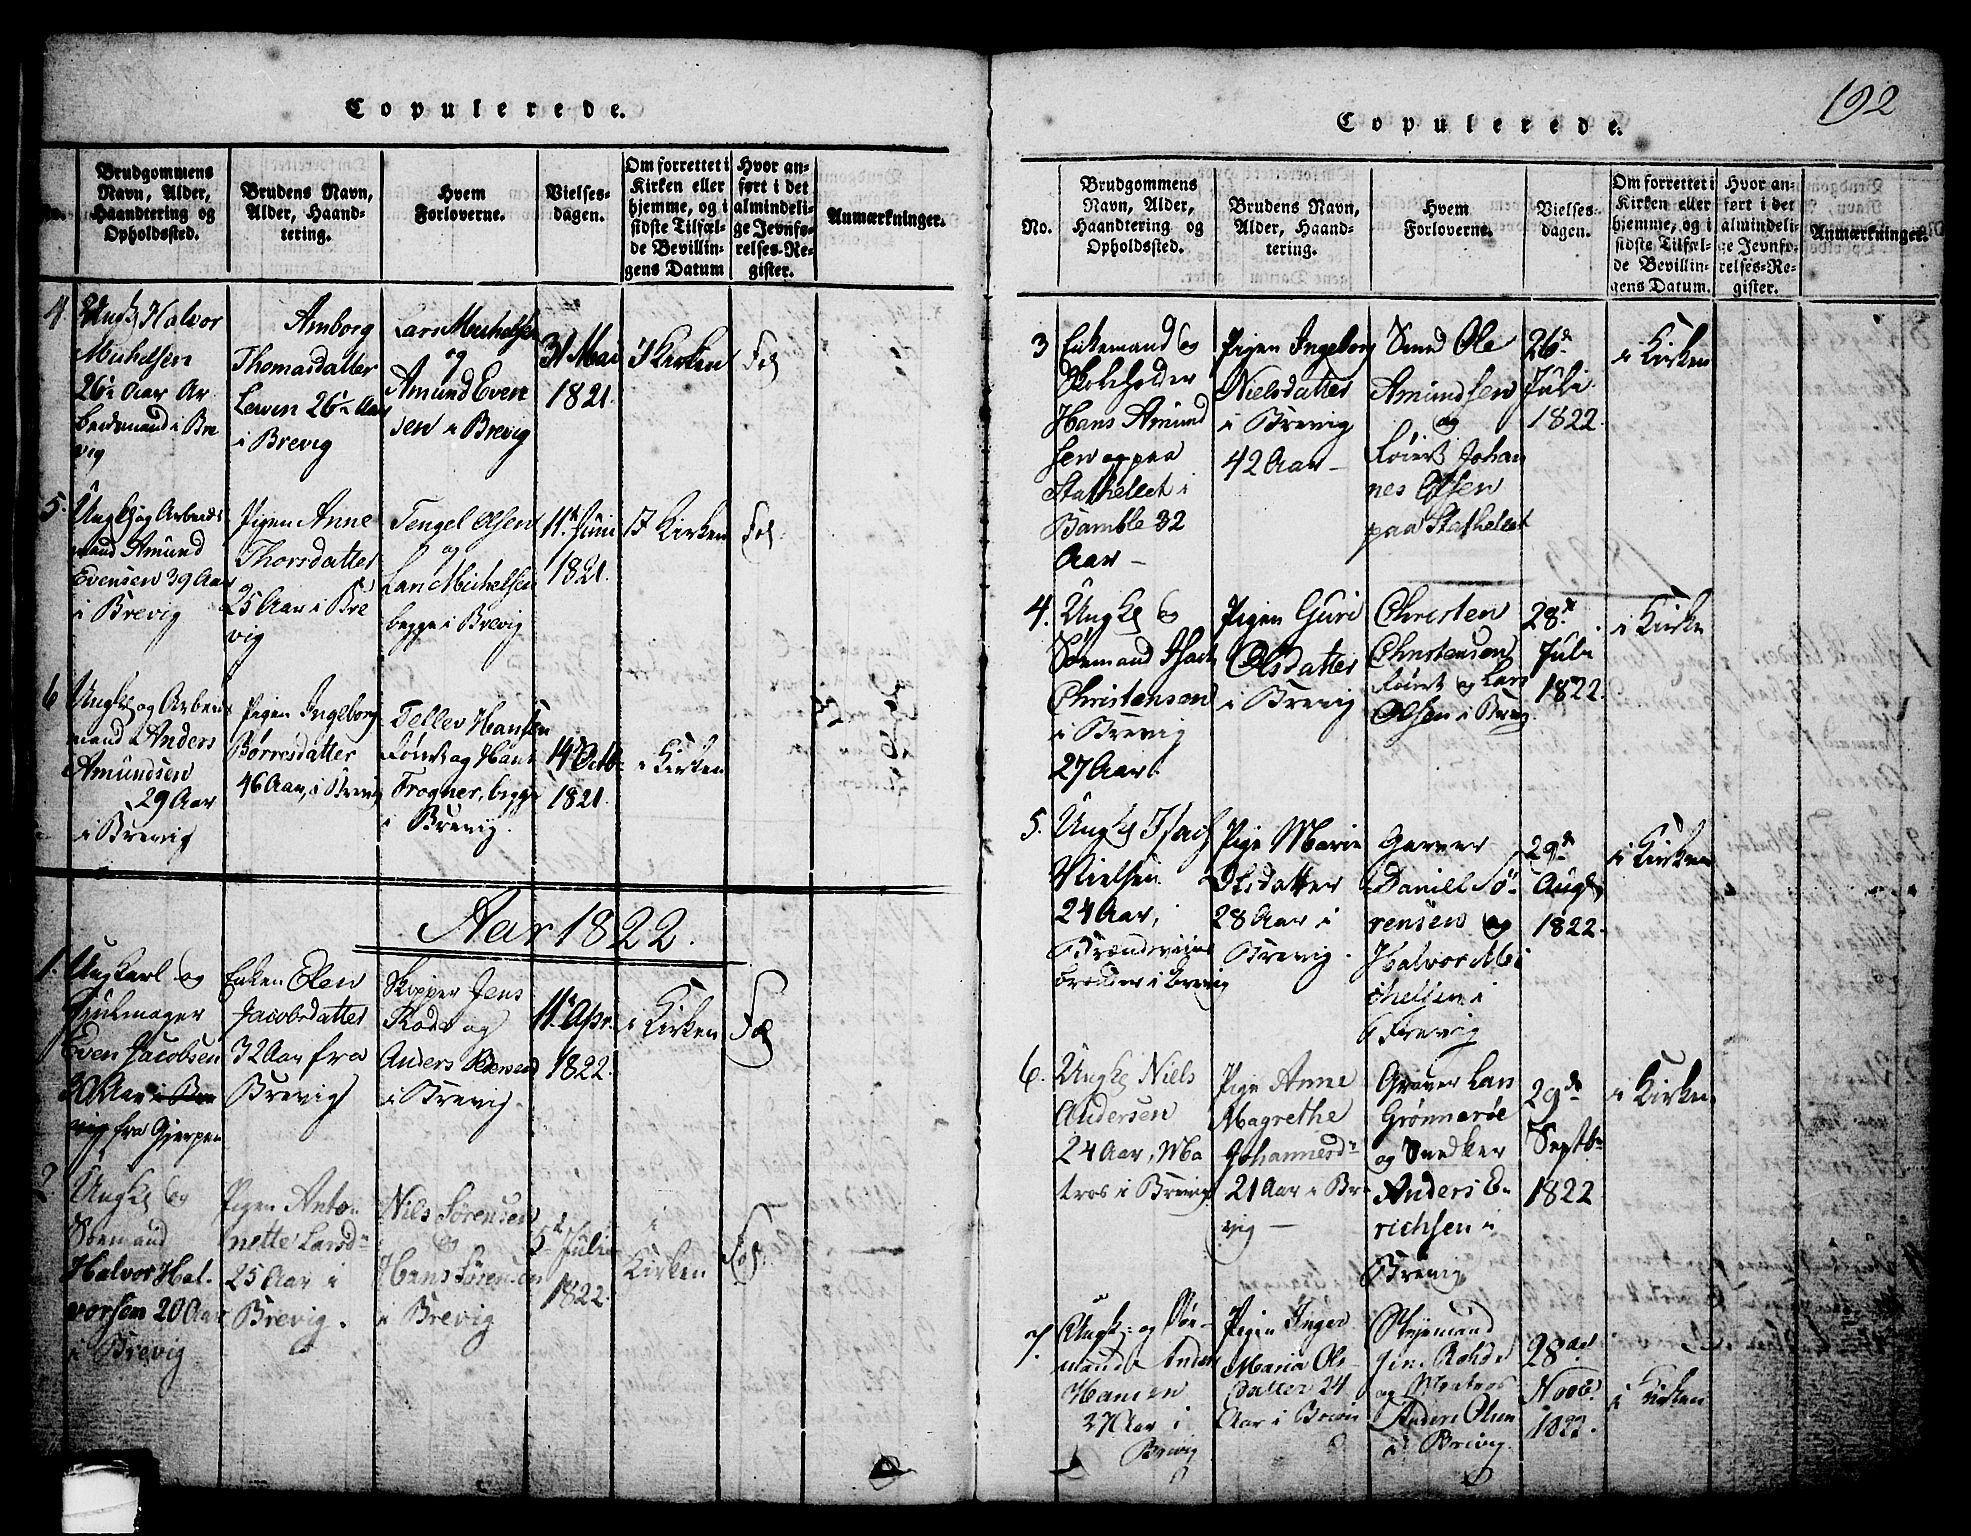 Copulerede.
No.
Brudgommens
Navn, Alder,
Haandtering og
Opholdssted.
Brudens Navn,
Alder, Haand-
tering.
Hvem
Forloverne.
Vielses-
dagen.
Om forrettet i
Kirken eller
hjemme, og i
sidste Tilfæl-
de Bevillin-
gens Datum
Hvor an-
ført i det
almindeli-
ge Jevnfø-
relses-Re-
gister.
Anmærkninger.
4
Ungk Halvor
Michelsen
26 Aar Ar
beidsmand i Bre
vig
Amborg
Thomasdatter
26 Aar
i Brevig
Lars Michelsen
og
Amund Even
sen i Brevig
31 Mai
1821
I Kirken
5.
Ungk og Arbeids
mand Amund
Evensen 39 Aar
i Brevig
Pigen Anne
Thorsdatter
25 Aar i Bre
vig
Tengel Olsen
og
Lars Michelsen
begge i Brevig
11 Juni
1821.
I Kirken
6
Ungk og Arbeids
mand Anders
Amundsen
29 Aar
i Brevig
Pigen Ingeborg
Børresdatter
46 Aar, i Brevig
Tellev Hansen
og Hans
Frogner, begge
i Brevig.
14 Octb
1821.
i Kirken
Aar 1822.
1.
Ungkarl og
Even Jacobsen
30 Aar i Bre
vig fra Gjerpen
Enken Elen
Jacobsdatter
32 Aar fra
Brevig
Skipper Jens
Rode og
Anders
i Brevig.
11 Apr.
1822.
i Kirken
2.
Ungk og
Søemand
Halvor Hal-
vorsen 20 Aar
i Brevig
Pigen Anto-
nette Larsd
25 Aar i
Brevig.
Nils Sørensen
og
Hans Sørensen
i Brevig
5 Julii
1822.
i
Kirken
192
Copulerede.
No.
Brudgommens
Navn, Alder,
Haandtering og
Opholdssted.
Brudens Navn,
Alder, Haand-
tering.
Hvem
Forloverne.
Vielses-
dagen.
Om forrettet i
Kirken eller
hjemme, og i
sidste Tilfæl-
de Bevillin-
gens Datum.
Hvor an-
ført i det
almindeli-
ge Jevnfø-
relses-Re-
gister.
Anmærkninger.
3
Enkemand og
Skoleholder
Hans Amund
sen paa
Stathellet i
Bamble 32
Aar –
Pigen Ingeborg
Nielsdatter
i Brevig
42 Aar –
Smed Ole
Amundsen
og
Johan
nes Olsen
paa Stathellet
26
Juli
1822
i Kirken
4.
Ungk og
Søemand Isach
Christensen
i Brevig
27 Aar.
Pigen Guri
Olsdatter
i Brevig
Christen
Christensen
og Lars
Olsen i Brevig
28
Juli
1822.
i Kirken
5.
Ungk Isach
Nielsen
24 Aar,
Brændeviins
brænder i Brevig
Pige Marie
Olsdatter
28 Aar i
Brevig.
Garver
Daniel Sø-
rensen og
Halvor Mi
chelsen i
Brevig
29
Aug
1822.
i Kirken
6.
Ungk Niels
Andersen
24 Aar, Ma
tros i Brevig
Pige Anne
Magrethe
Johannesd
21 Aar i Bre
vig –
Graver Lars
Grønnerøe
og Snedker
Anders E-
richsen i
Brevig
29
Septb
1822
i Kirken
7.
Ungk: og Søe-
mand Anders
Hansen
27 Aar i
Brevig
Pigen Inger
Maria Ols-
datter 24
Aar i Brevig
Jens Rohde
og Matros
Anders Olsen
i Brevig.
28
Novb
1822.
i Kirken